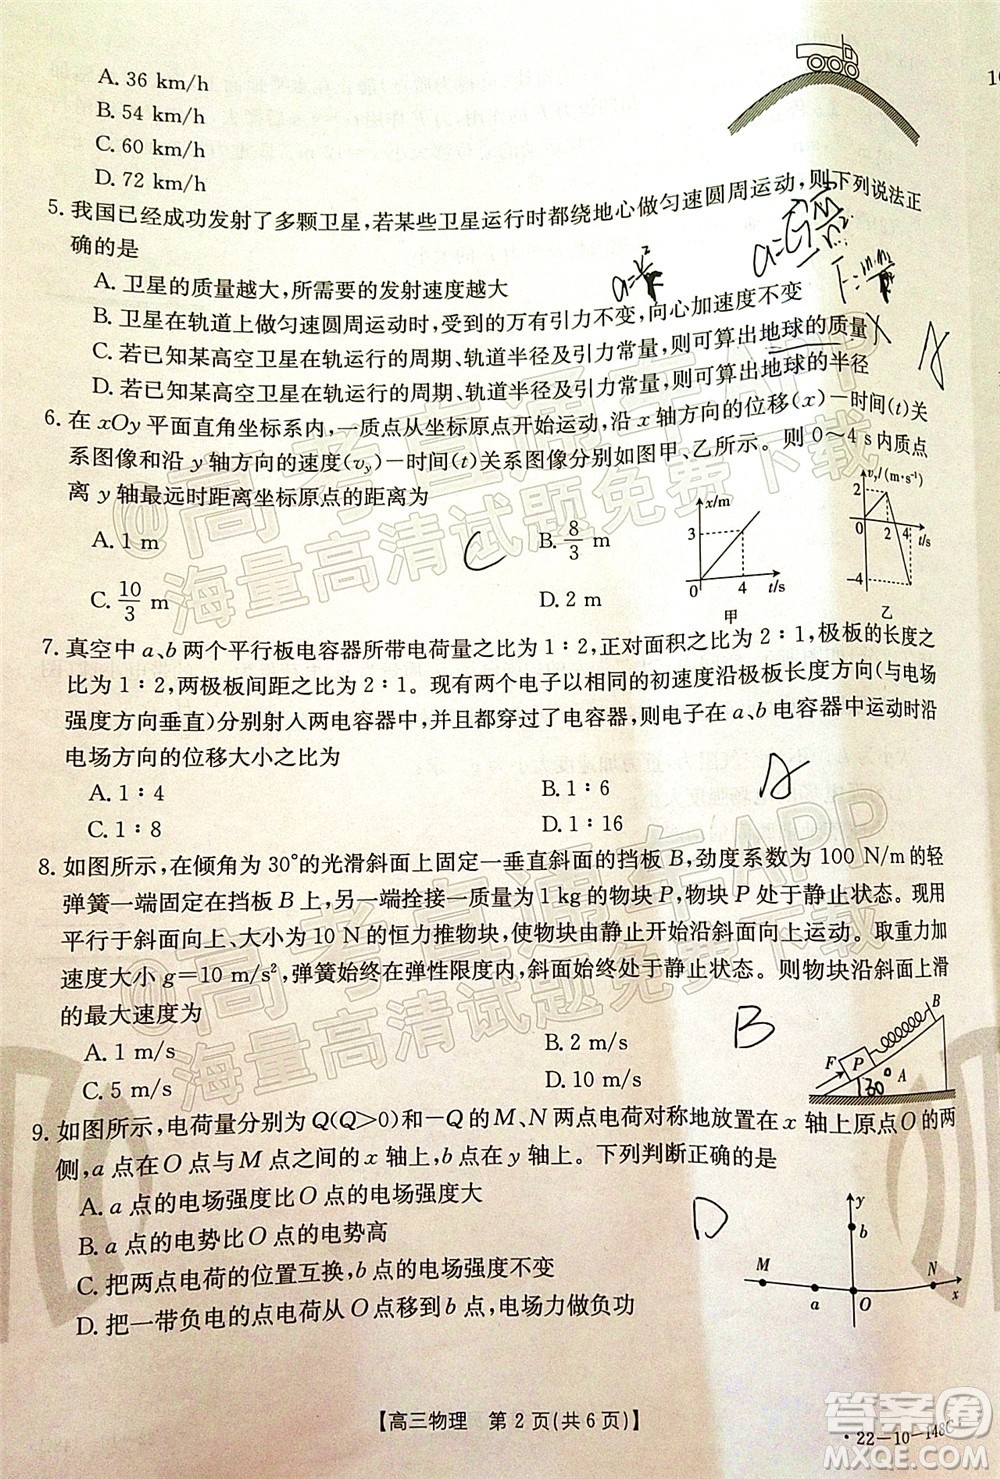 A. 36 km/h
B. 54 km/h
C. 60 km/h
D. 72 km/h
5. 我国已经成功发射了多颗卫星，若某些卫星运行时都绕地心做匀速圆周运动，则下列说法正
确的是
A. 卫星的质量越大，所需要的发射速度越大
B. 卫星在轨道上做匀速圆周运动时，受到的万有引力不变，向心加速度不变
C. 若已知某高空卫星在轨运行的周期、轨道半径及引力常量，则可算出地球的质量
D. 若已知某高空卫星在轨运行的周期、轨道半径及引力常量，则可算出地球的半径
6. 在 xOy 平面直角坐标系内，一质点从坐标原点开始运动，沿 x 轴方向的位移(x)—时间(t)关
系图像和沿 y 轴方向的速度(v_y)—时间(t)关系图像分别如图甲、乙所示。则 0～4 s内质点
离 y 轴最远时距离坐标原点的距离为
A. 1 m
B. 8/3 m
C. 10/3 m
D. 2 m
x/m
3
0
4
t/s
甲
v_y/(m·s⁻¹)
2
0
2
4
t/s
-4
乙
7. 真空中 a、b 两个平行板电容器所带电荷量之比为 1∶2，正对面积之比为 2∶1，极板的长度之
比为 1∶2，两极板间距之比为 2∶1。现有两个电子以相同的初速度沿极板长度方向(与电场
强度方向垂直)分别射入两电容器中，并都穿过了电容器，则电子在 a、b 电容器中运动时沿
电场方向的位移大小之比为
A. 1∶4
B. 1∶6
C. 1∶8
D. 1∶16
8. 如图所示，在倾角为 30°的光滑斜面上固定一垂直斜面的挡板 B，劲度系数为 100 N/m的轻
弹簧一端固定在挡板 B 上，另一端拴接一质量为 1 kg 的物块 P，物块 P 处于静止状态。现用
平行于斜面向上、大小为 10 N 的恒力推物块，使物块由静止开始沿斜面向上运动。取重力加
速度大小 g=10 m/s²，弹簧始终在弹性限度内，斜面始终处于静止状态。则物块沿斜面上滑
的最大速度为
A. 1 m/s
B. 2 m/s
C. 5 m/s
D. 10 m/s
F
P
B
A
30°
9. 如图所示，电荷量分别为 Q(Q>0)和－Q 的 M、N 两点电荷对称地放置在 x 轴上原点O的两
侧，a 点在 O 点与 M 点之间的 x 轴上，b 点在 y 轴上。下列判断正确的是
A. a 点的电场强度比 O 点的电场强度大
B. a 点的电势比 O 点的电势高
C. 把两点电荷的位置互换，b 点的电场强度不变
D. 把一带负电的点电荷从 O 点移到 b 点，电场力做负功
y
b
M
N
a
O
x
【高三物理 第 2 页(共 6 页)】
·22-10-148C·
A
C
A
B
D
@高考直通车APP
海量高清试题免费下载
@高考直通车APP
海量高清试题免费下载
答案圈
MXQE.COM